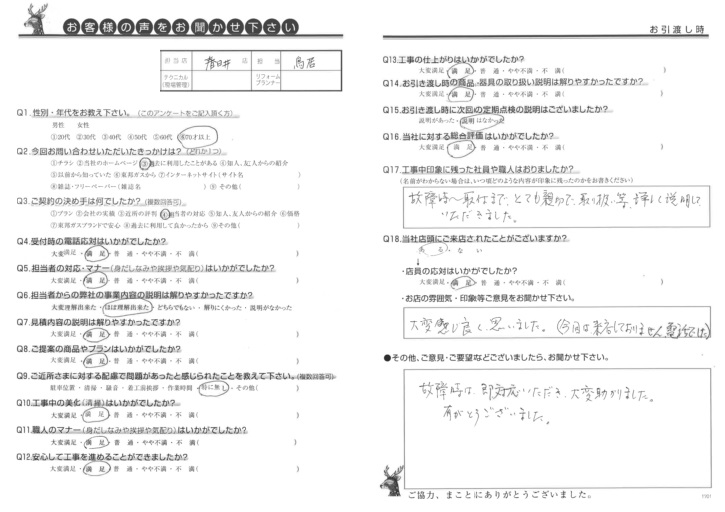 お客様の声をお聞かせ下さい
担当店 春日井 店 担当 鳥居
テクニカル(現場管理) リフォームプランナー
Q1.性別・年代をお教え下さい。(このアンケートをご記入頂く方)
男性 女性
①20代 ②30代 ③40代 ④50代 ⑤60代 ⑥70才以上
Q2.今回お問い合わせいただいたきっかけは?(どれか1つ)
①チラシ ②当社のホームページ ③過去に利用したことがある ④知人、友人からの紹介
⑤以前から知っていた ⑥東邦ガスから ⑦インターネットサイト(サイト名 )
⑧雑誌・フリーペーパー(雑誌名 ) ⑨その他( )
Q3.ご契約の決め手は何でしたか?(複数回答可)
①プラン ②会社の実績 ③近所の評判 ④担当者の対応 ⑤知人、友人からの紹介 ⑥価格
⑦東邦ガスブランドで安心 ⑧過去に利用して良かったから ⑨その他( )
Q4.受付時の電話応対はいかがでしたか?
大変満足・満 足・普 通・やや不満・不 満( )
Q5.担当者の対応・マナー(身だしなみや挨拶や気配り)はいかがでしたか?
大変満足・満 足・普 通・やや不満・不 満( )
Q6.担当者からの弊社の事業内容の説明は解りやすかったですか?
大変理解出来た・ほぼ理解出来た・どちらでもない・解りにくかった・説明がなかった
Q7.見積内容の説明は解りやすかったですか?
大変満足・満 足・普 通・やや不満・不 満( )
Q8.ご提案の商品やプランはいかがでしたか?
大変満足・満 足・普 通・やや不満・不 満( )
Q9.ご近所さまに対する配慮で問題があったと感じられたことを教えて下さい。(複数回答可)
駐車位置・清掃・騒音・着工前挨拶・作業時間・特に無し・その他( )
Q10.工事中の美化(清掃)はいかがでしたか?
大変満足・満 足・普 通・やや不満・不 満( )
Q11.職人のマナー(身だしなみや挨拶や気配り)はいかがでしたか?
大変満足・満 足・普 通・やや不満・不 満( )
Q12.安心して工事を進めることができましたか?
大変満足・満 足・普 通・やや不満・不 満( )
お引渡し時
Q13.工事の仕上がりはいかがでしたか?
大変満足・満 足・普 通・やや不満・不 満( )
Q14.お引き渡し時の商品・器具の取り扱い説明は解りやすかったですか?
大変満足・満 足・普 通・やや不満・不 満( )
Q15.お引き渡し時に次回の定期点検の説明はございましたか?
説明があった・説明はなかった
Q16.当社に対する総合評価はいかがでしたか?
大変満足・満 足・普 通・やや不満・不 満( )
Q17.工事中印象に残った社員や職人はおりましたか?
(名前がわからない場合は、いつ頃どのような内容が印象に残ったのかをお書きください)
故障時〜取付まで、とても親切で、取り扱い等、詳しく説明して
いただきました。
Q18.当社店頭にご来店されたことがございますか?
ある・ない
・店員の応対はいかがでしたか?
大変満足・満 足・普 通・やや不満・不 満( )
・お店の雰囲気・印象等ご意見をお聞かせ下さい。
大変感じ良く思いました。(今回は来店しておりません、電話では)
●その他、ご意見・ご要望などございましたら、お聞かせ下さい。
故障時は、即対応いただき、大変助かりました。
ありがとうございました。
ご協力、まことにありがとうございました。